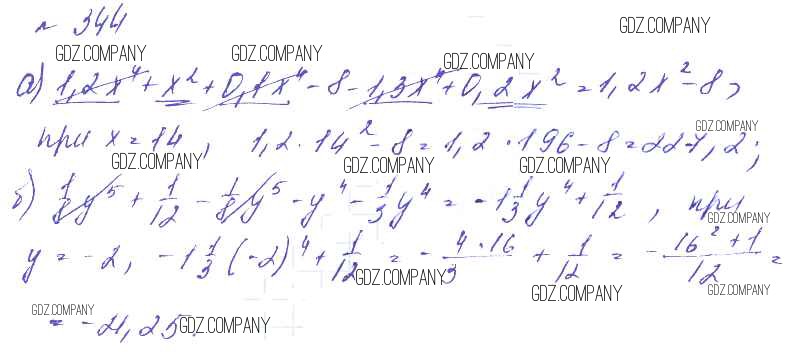 № 344
GDZ.COMPANY
GDZ.COMPANY GDZ.COMPANY GDZ.COMPANY
а) 1,2x⁴ + x² + 0,1x⁴ - 8 - 1,3x⁴ + 0,2x² = 1,2x² - 8,
GDZ.COMPANY
при x = 14, 1,2 · 14² - 8 = 1,2 · 196 - 8 = 227,2;
GDZ.COMPANY GDZ.COMPANY GDZ.COMPANY
б) 1/8 y⁵ + 1/12 - 1/8 y⁵ - y⁴ - 1/3 y⁴ = -1 1/3 y⁴ + 1/12, при
GDZ.COMPANY
y = -2, -1 1/3 (-2)⁴ + 1/12 = - 4·16/3 + 1/12 = - 16² + 1/12 =
GDZ.COMPANY GDZ.COMPANY GDZ.COMPANY
GDZ.COMPANY
= -21,25.
GDZ.COMPANY